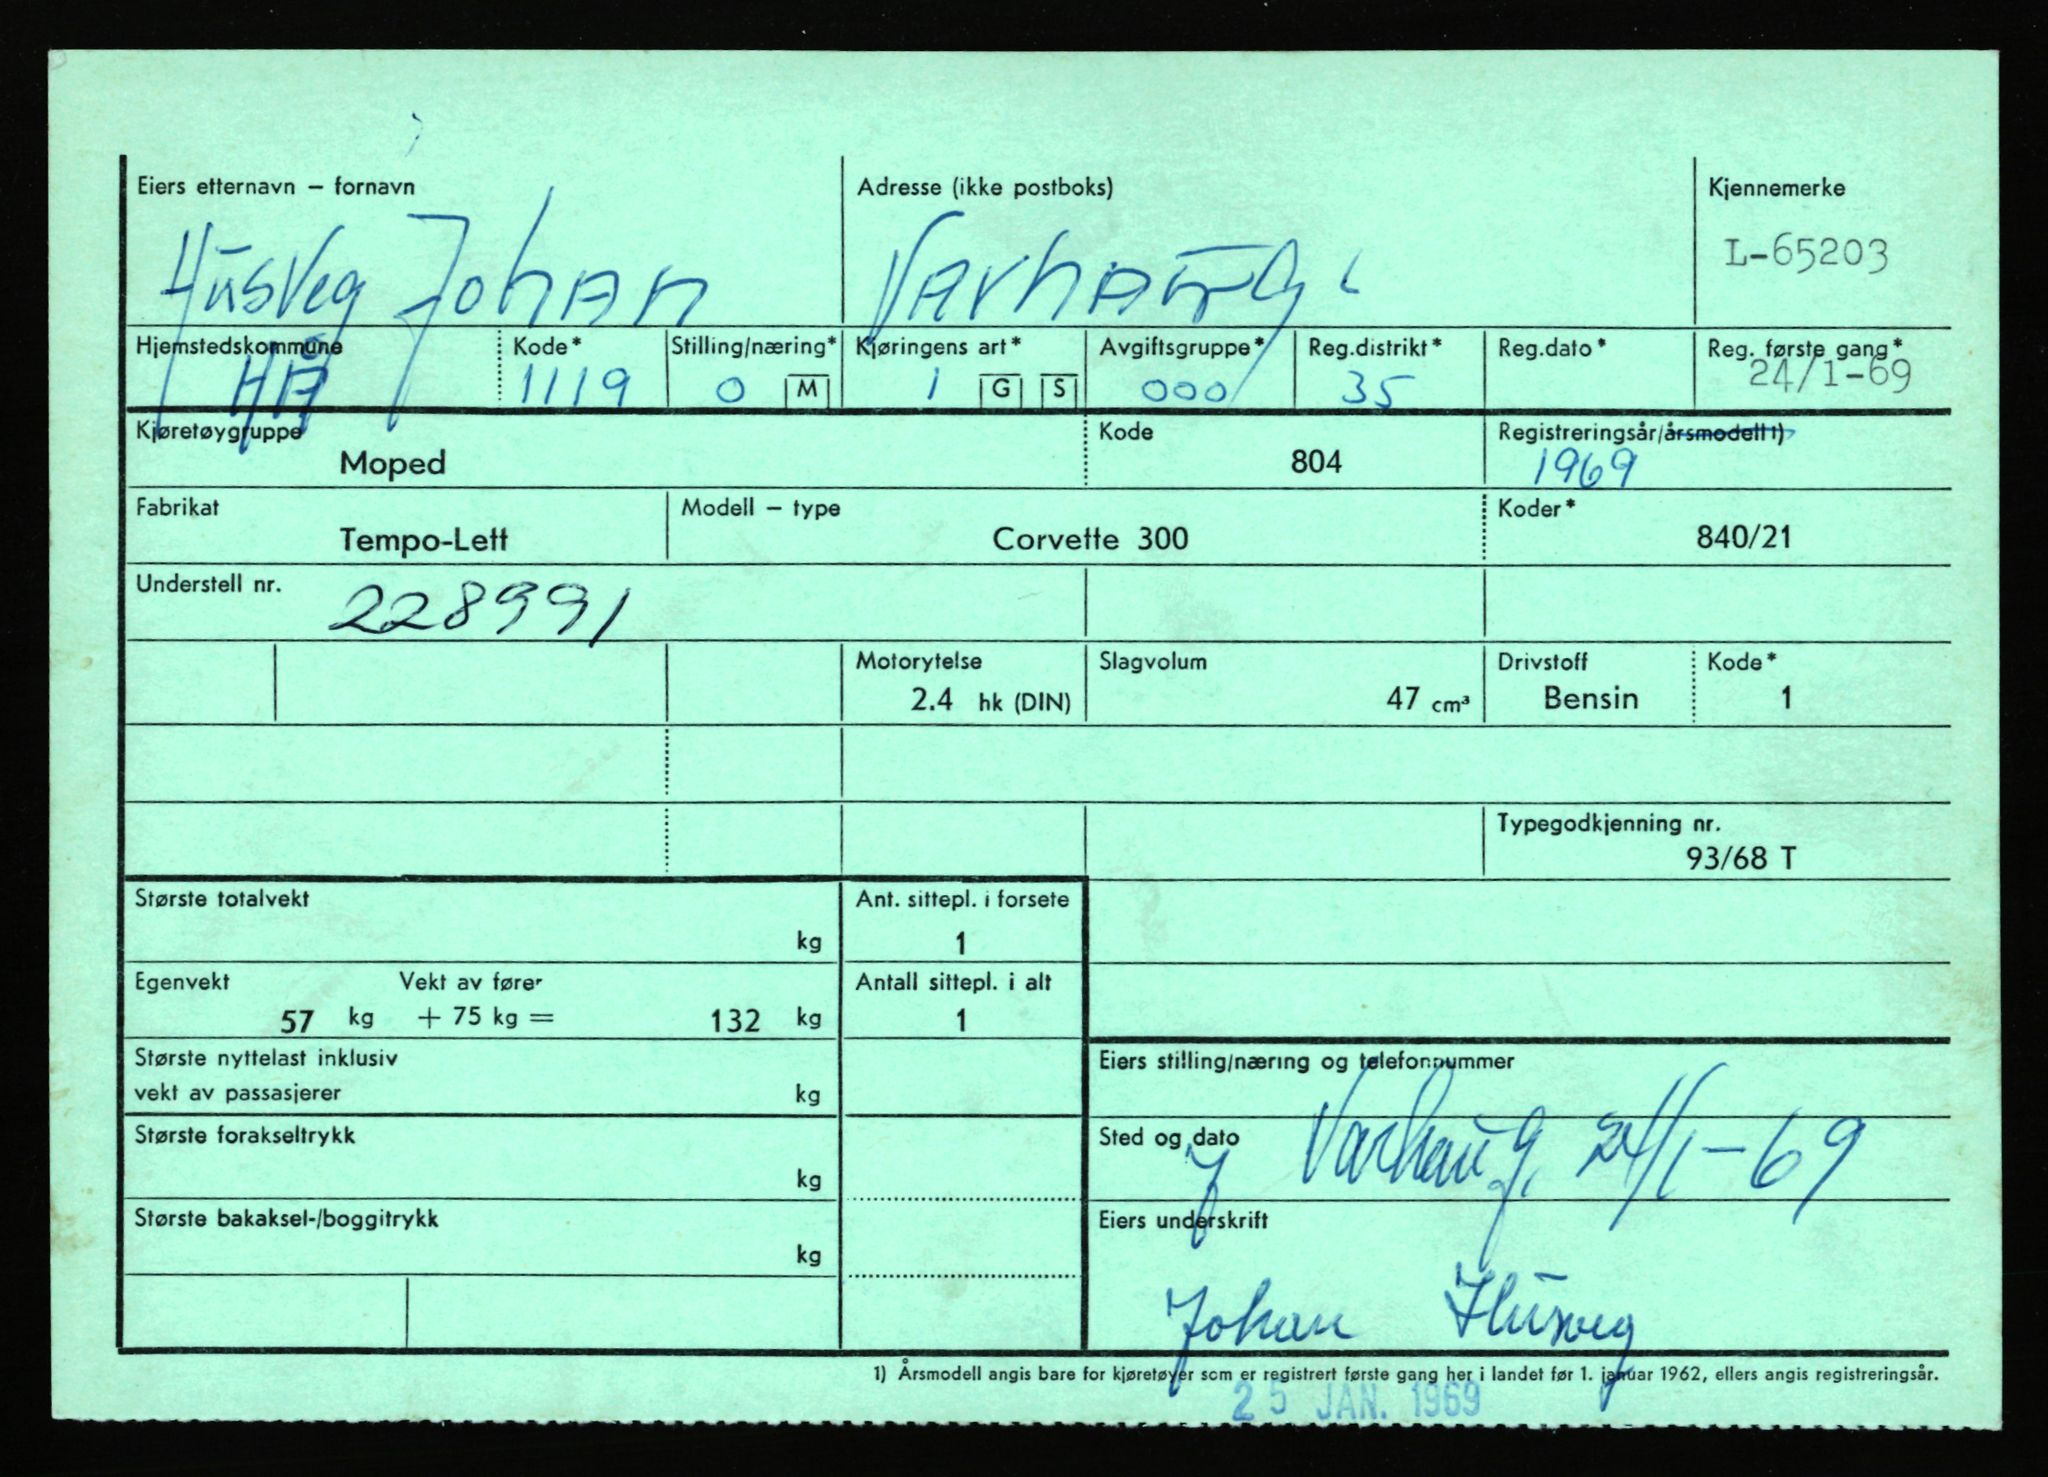 Eiers etternavn – fornavn Adresse (ikke postboks) Kjennemerke
Husveg Johan Varhaug. L-65203
Hjemstedskommune Kode* Stilling/næring* Kjøringens art* Avgiftsgruppe* Reg.distrikt* Reg.dato* Reg. første gang*
HÅ 1119 0 M 1 G S 000 35 24/1-69
Kjøretøygruppe Kode Registreringsår/årsmodell 1)
Moped 804 1969
Fabrikat Modell – type Koder*
Tempo-Lett Corvette 300 840/21
Understell nr. 228991
Motorytelse Slagvolum Drivstoff Kode*
2.4 hk (DIN) 47 cm³ Bensin 1
Typegodkjenning nr.
93/68 T
Største totalvekt Ant. sittepl. i forsete
kg 1
Egenvekt Vekt av fører Antall sittepl. i alt
57 kg + 75 kg = 132 kg 1
Største nyttelast inklusiv Eiers stilling/næring og telefonnummer
vekt av passasjerer kg
Største forakseltrykk Sted og dato Varhaug, 24/1-69
kg
Største bakaksel-/boggitrykk Eiers underskrift
kg
Johan Husveg
1) Årsmodell angis bare for kjøretøyer som er registrert første gang her i landet før 1. januar 1962, ellers angis registreringsår.
25 JAN. 1969